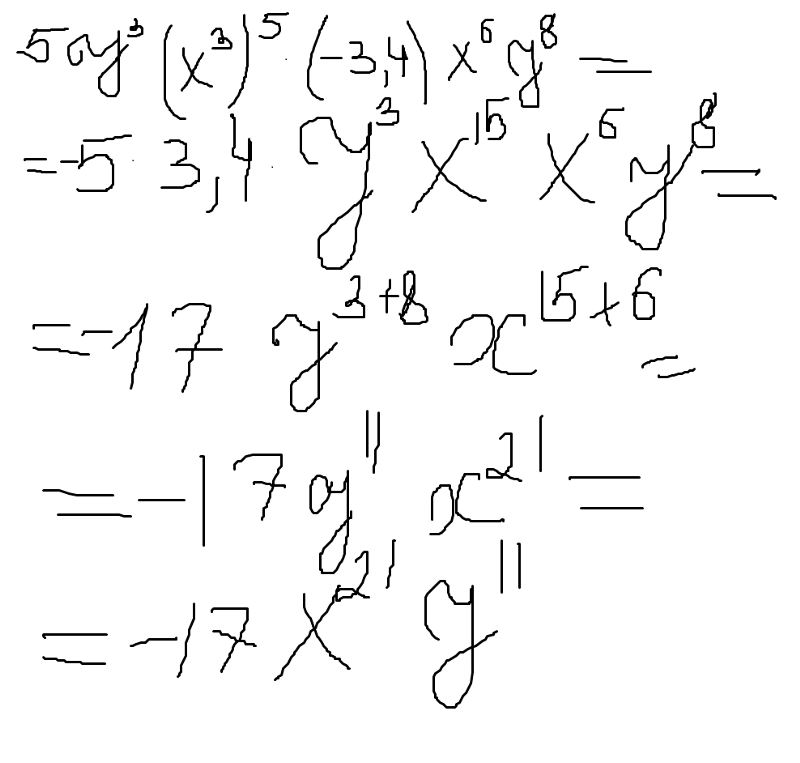 5y³(x³)⁵·(-3,4)x⁶y⁸=
=-5·3,4·y³x¹⁵x⁶y⁸=
=-17y³⁺⁸x¹⁵⁺⁶=
=-17y¹¹x²¹=
=-17x²¹y¹¹